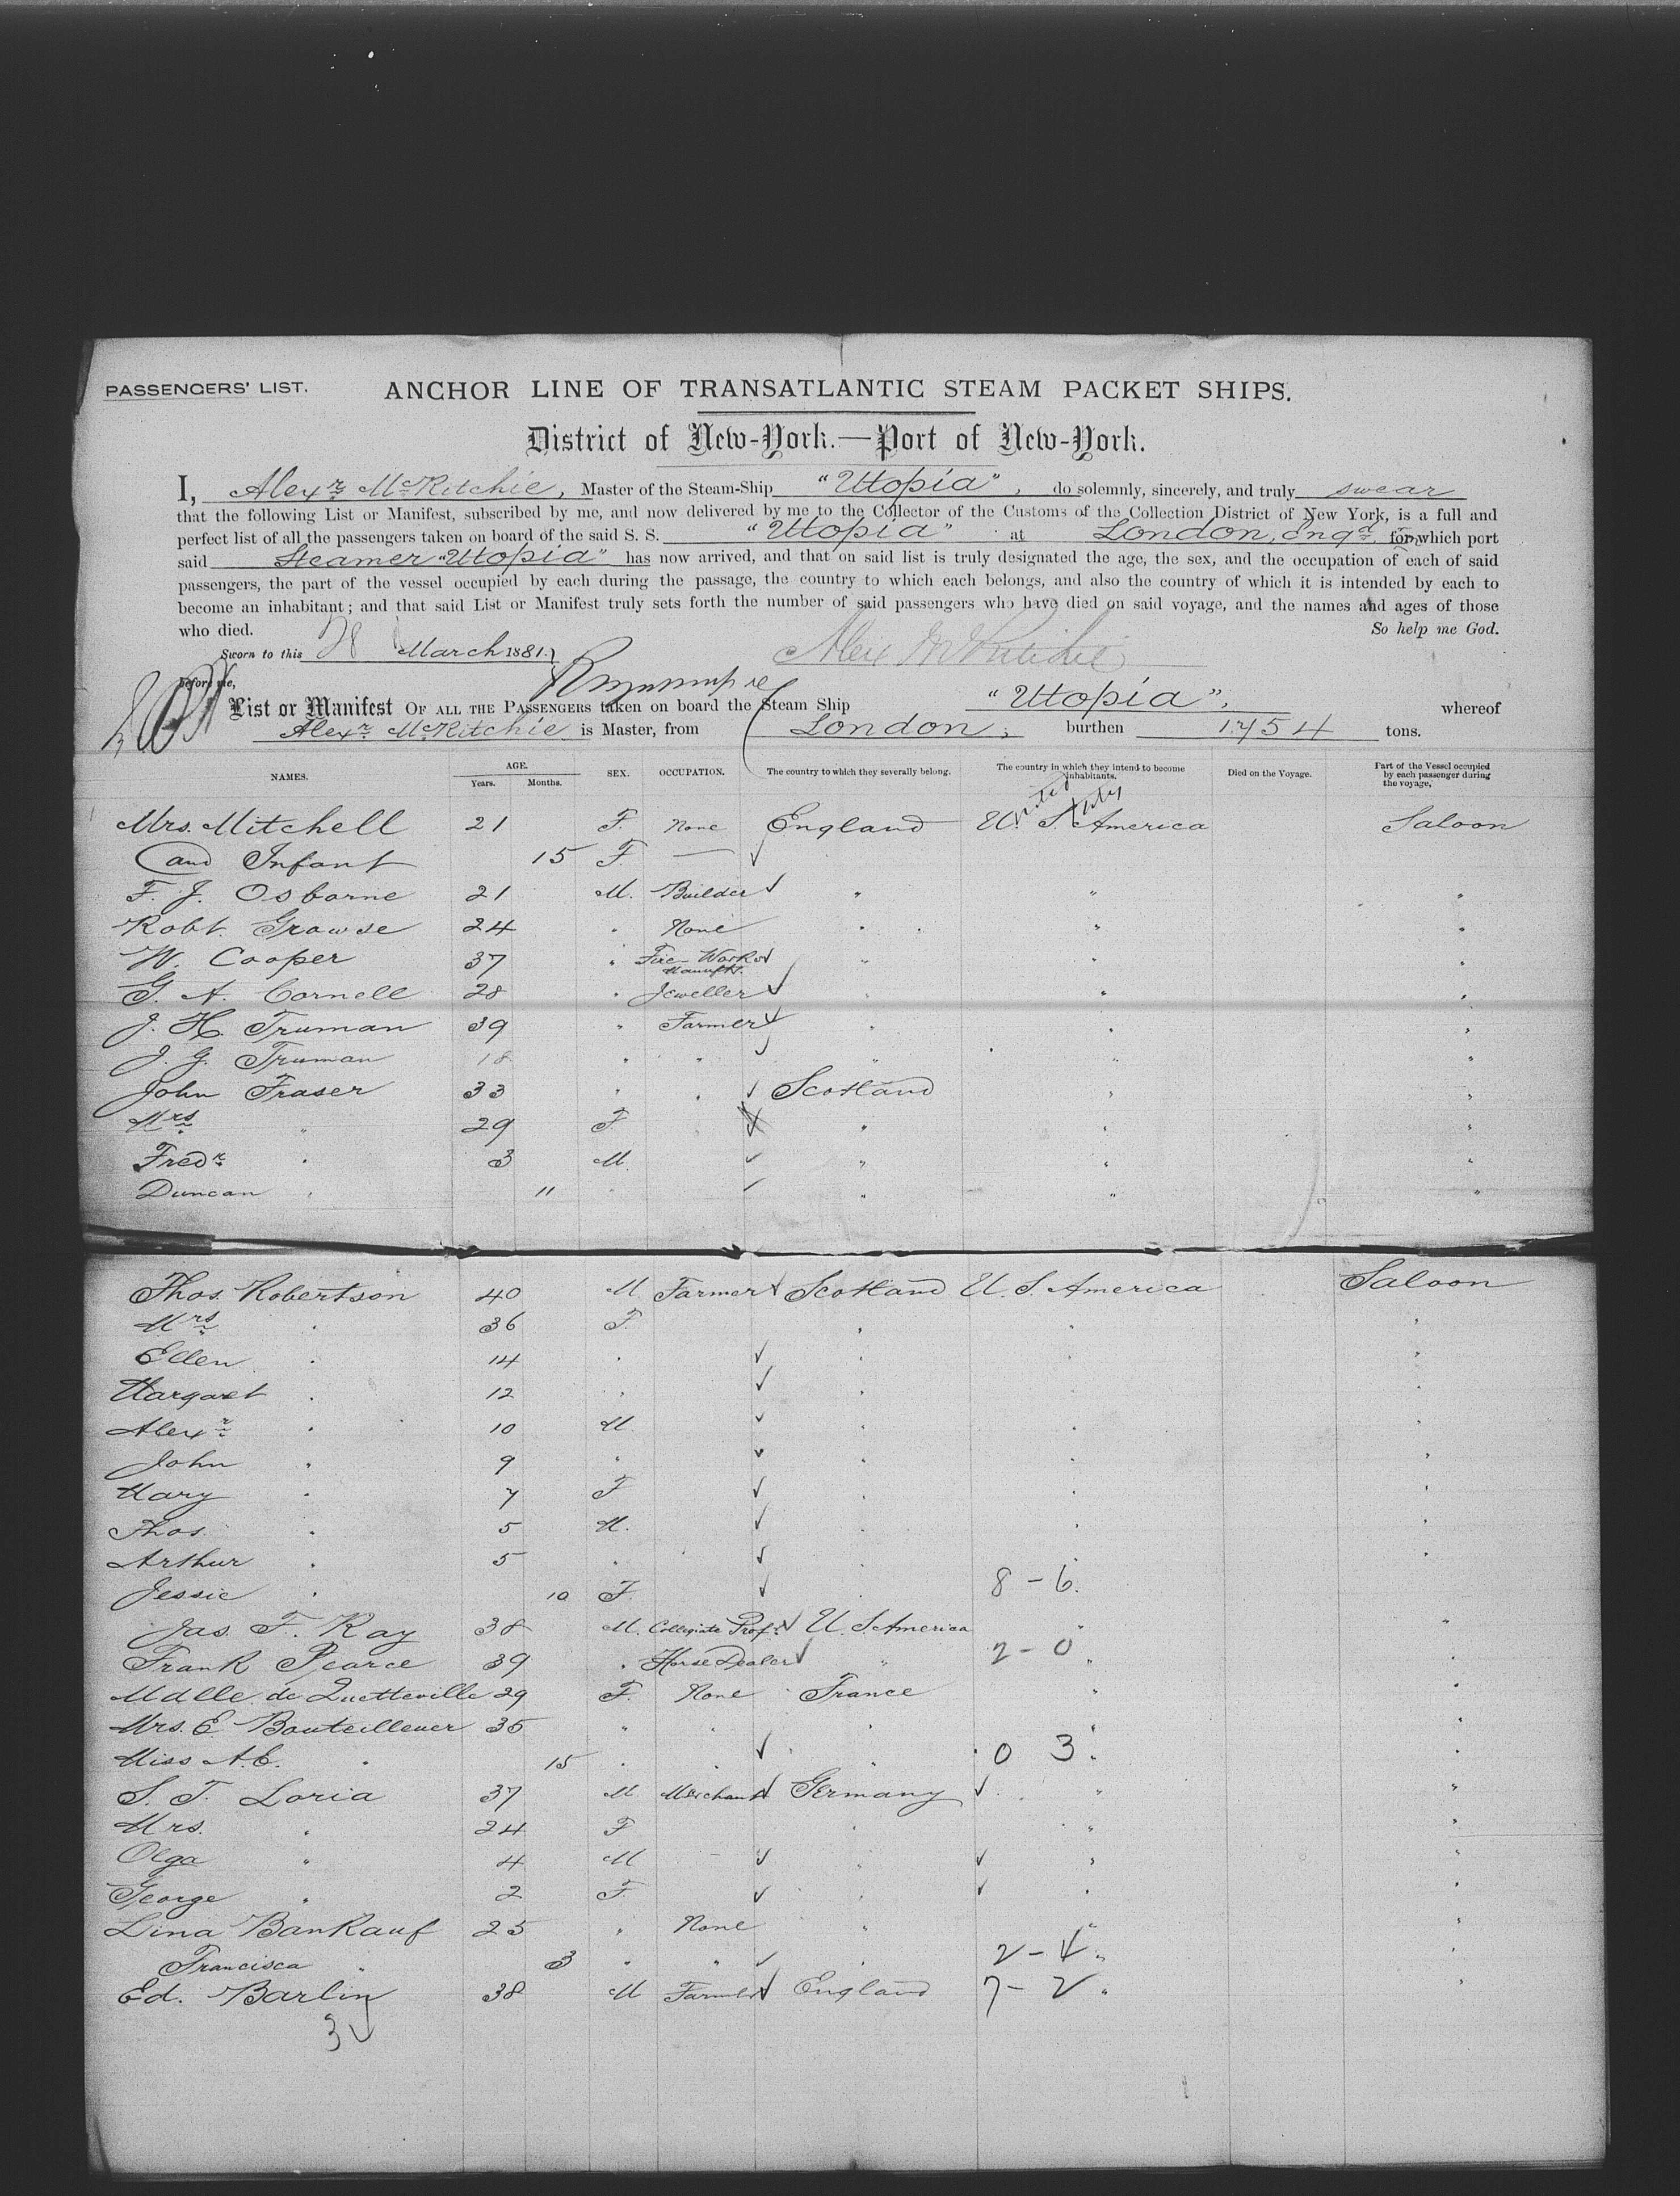 PASSENGERS' LIST. ANCHOR LINE OF TRANSATLANTIC STEAM PACKET SHIPS.
District of New-York.—Port of New-York.
I, Alexr McRitchie, Master of the Steam-Ship "Utopia", do solemnly, sincerely, and truly swear
that the following List or Manifest, subscribed by me, and now delivered by me to the Collector of the Customs of the Collection District of New York, is a full and
perfect list of all the passengers taken on board of the said S. S. "Utopia" at London, Engd, from which port
said Steamer "Utopia" has now arrived, and that on said list is truly designated the age, the sex, and the occupation of each of said
passengers, the part of the vessel occupied by each during the passage, the country to which each belongs, and also the country of which it is intended by each to
become an inhabitant; and that said List or Manifest truly sets forth the number of said passengers who have died on said voyage, and the names and ages of those
who died. So help me God.
Sworn to this 28 March 1881. Alex McRitchie
before me,
List or Manifest OF ALL THE PASSENGERS taken on board the Steam Ship "Utopia", whereof
Alexr McRitchie is Master, from London, burthen 1754 tons.
NAMES. AGE. Years. Months. SEX. OCCUPATION. The country to which they severally belong. The country in which they intend to become inhabitants. Died on the Voyage. Part of the Vessel occupied by each passenger during the voyage.
Mrs. Mitchell 21 F. None England U. S. America Saloon
United States
and Infant 15 F. — ✓
F. J. Osborne 21 M. Builder ✓ " " "
Robt. Growse 24 " None " " "
W. Cooper 37 " Fire-Works Manuftr. ✓ " " "
G. A. Cornell 28 " Jeweller ✓ " " "
J. H. Truman 39 " Farmer ✓ " " "
J. G. Truman 18 " " ✓ " " "
John Fraser 33 " " ✓ Scotland " "
Mrs " 29 F " " "
Fredk " 3 M ✓ " " "
Duncan " 11 " ✓ " " "
Thos. Robertson 40 M Farmer ✓ Scotland U. S. America Saloon
Mrs " 36 F. " " "
Ellen " 14 " ✓ " " "
Margaret " 12 " ✓ " "
Alexr " 10 M ✓ " " "
John " 9 " ✓ " " "
Mary " 7 F ✓ " " "
Thos. " 5 M. ✓ " " "
Arthur " 5 " ✓ " " "
Jessie " 10 F. ✓ 8 - 6.
Jas. F. Ray 38 M. Collegiate Profr ✓ U. S. America " "
Frank Pearce 39 " Horse Dealer ✓ " 2 - 0 " "
Mdlle. de Quetteville 29 F. None France " "
Mrs. E. Bouteillener 35 " " " " "
Miss A. E. " 15 " " ✓ " 0 3 " "
S. T. Loria 37 M Merchant ✓ Germany ✓ " "
Mrs. " 24 F " " "
Olga " 4 M ✓ " ✓ " "
George " 2 F. ✓ " ✓ " "
Lina Bankauf 25 " None " " "
Francisca " 3 " " ✓ " 2 - 4 " "
Ed. Barlin 38 M Farmer ✓ England 7 - 2 " "